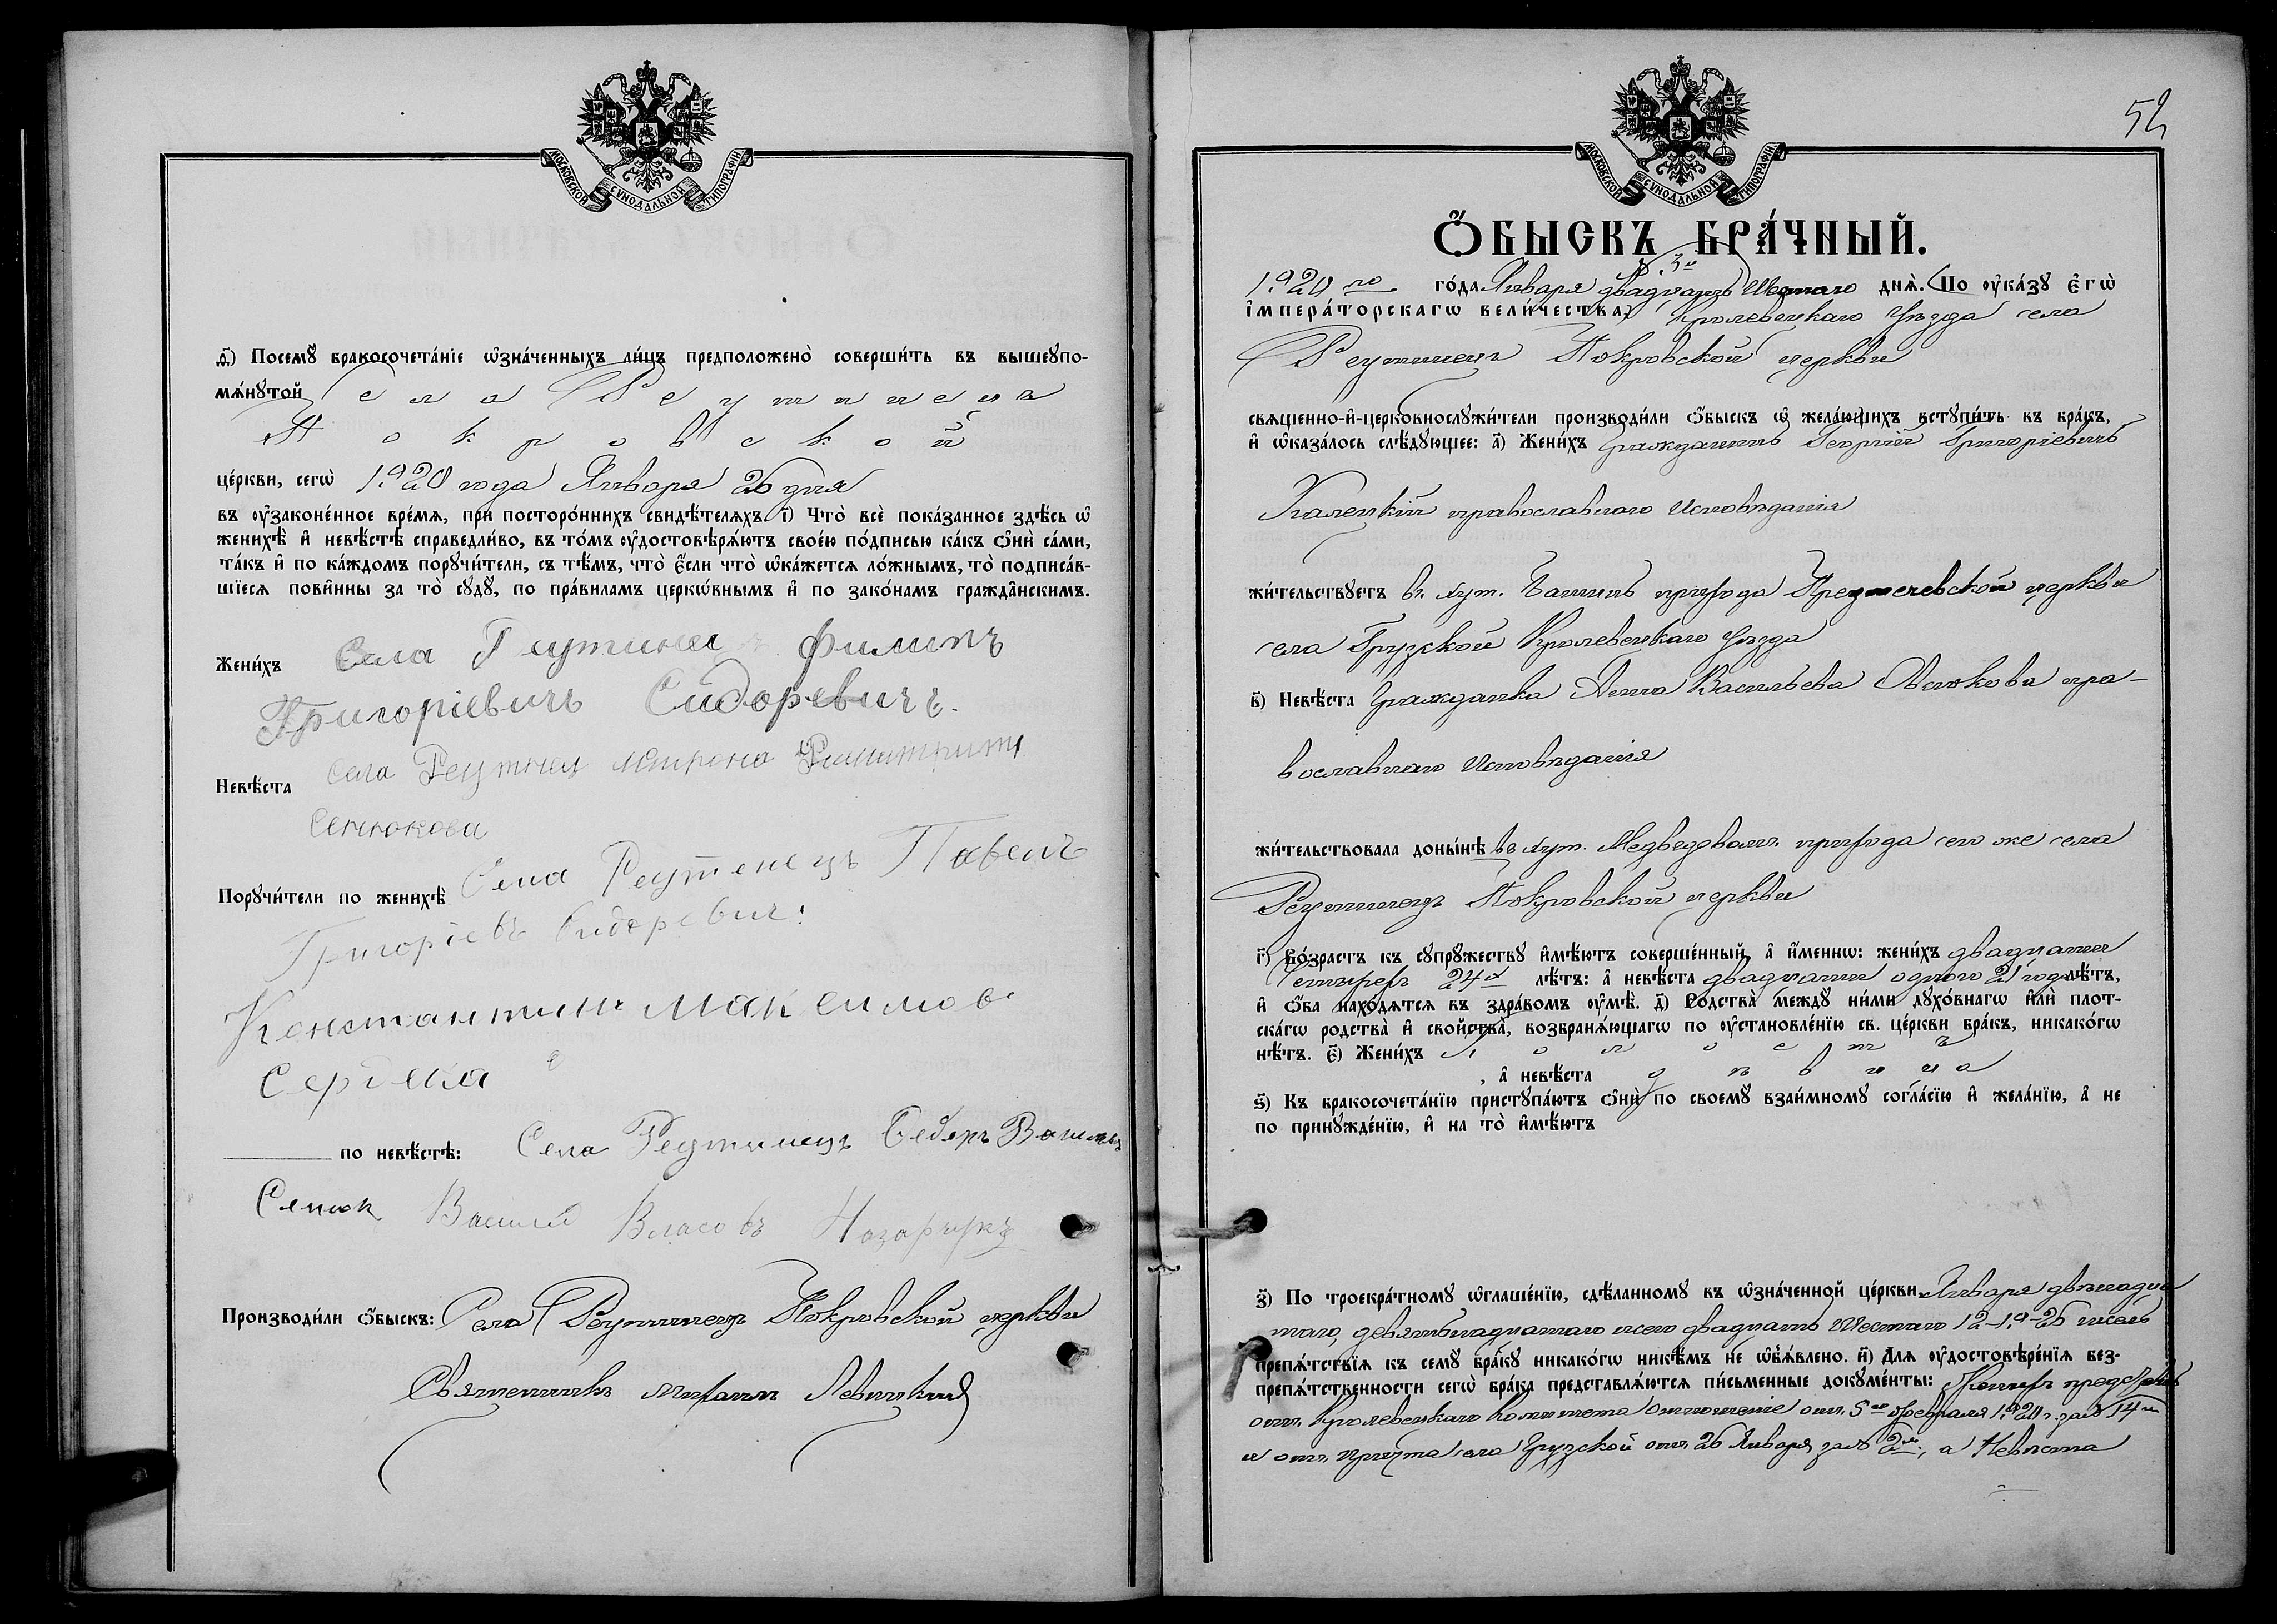 МОСКОВСКОЙ СѴНОДАЛЬНОЙ ТИПОГРАФІИ
ѳ҃) Посемꙋ̀ бракосочета́нїе ѡ҆зна́ченныхъ ли́цъ предположено̀ соверши́ть въ вышеꙋпо-
мѧ́нꙋтой села Реутинецъ
Покровской
це́ркви, сегѡ̀ 1920 года Января 26 дня
въ ᲂу҆законе́нное вре́мѧ, при посторо́ннихъ свидѣ́телѧхъ. і҃) Что̀ всѐ пока́занное здѣ́сь ѡ҆
женихѣ̀ и҆ невѣ́стѣ справедли́во, въ то́мъ ᲂу҆достовѣрѧ́ютъ свое́ю по́дписью ка́къ ѻ҆нѝ са́ми,
та́къ и҆ по ка́ждомъ порꙋчи́тели, съ тѣ́мъ, что̀ є҆́сли что̀ ѡ҆ка́жетсѧ ло́жнымъ, то̀ подписа́в-
шїесѧ пови́нны за то̀ сꙋдꙋ̀, по пра́виламъ церкѡ́внымъ и҆ по зако́намъ гражда̑нскимъ.
Жени́хъ Села Реутинец Филипъ
Григоріевичъ Сидоревичъ.
Невѣ́ста Села Реутинец
Сенюкова
Порꙋчи́тели по женихѣ̀ Села Реутенецъ Павелъ
Григоріевъ Сидоревич.
Константин Максимов
Сердека
по невѣ́стѣ: Села Реутинецъ
Сенюк Василій Власовъ Назарчукъ
Производи́ли ѻ҆́быскъ: Села Реутинецъ Покровской церкви
Священникъ Михаилъ Левицкій
52
МОСКОВСКОЙ СѴНОДАЛЬНОЙ ТИПОГРАФІИ
Ѻ҆́БЫСКЪ БРА́ЧНЫЙ.
1920 го го́да Января двадцать Шестаго днѧ̀. По ᲂу҆ка́зꙋ є҆гѡ̀
і҆мпера́торскагѡ вели́чества, Кролевецкаго Уѣзда села
Реутинецъ Покровской церкви
свѧщенно-и҆-церковнослꙋжи́тели производи́ли ѻ҆́быскъ ѡ҆ жела́ющихъ встꙋпи́ть въ бра́къ,
и҆ ѡ҆каза́лось слѣ́дꙋющее: а҃) Жени́хъ Гражданинъ Георгій Григоріевичъ
Калецкій православнаго Исповѣданія
жи́тельствꙋетъ въ хут. прихода Предтечевской церкви
села Грузской Кролевецкаго Уѣзда
в҃) Невѣ́ста Гражданка Анна Васильева пра-
вославнаго Исповѣданія
жи́тельствовала доны́нѣ въ хут. прихода сего же села
Реутинецъ Покровской церкви
г҃) Во́зрастъ къ сꙋпрꙋ́жествꙋ и҆мѣ́ютъ соверше́нный, а҆ и҆́меннѡ: жени́хъ двадцати
Четырехъ 24х лѣ́тъ: а҆ невѣ́ста двадцати одного 21 года лѣ́тъ,
и҆ ѻ҆́ба нахо́дѧтсѧ въ здра́вомъ ᲂу҆мѣ̀. д҃) Родства̀ ме́ждꙋ ни́ми дꙋхо́внагѡ и҆лѝ плот-
ска́гѡ родства̀ и҆ свойства̀, возбранѧ́ющагѡ по ᲂу҆становле́нїю св. це́ркви бра́къ, никако́гѡ
нѣ́тъ. є҃) Жени́хъ холостъ
, а҆ невѣ́ста дѣвица
ѕ҃) Къ бракосочета́нїю пристꙋпа́ютъ ѻ҆нѝ по своемꙋ̀ взаи́мномꙋ согла́сїю и҆ жела́нїю, а҆ не
по принꙋжде́нїю, и҆ на то̀ и҆мѣ́ютъ
з҃) По троекра́тномꙋ ѡ҆глаше́нїю, сдѣ́ланномꙋ въ ѡ҆зна́ченной це́ркви Января двѣнадца
таго, девятьнадцатаго и двадцать Шестаго 12-19-26 чиселъ
препѧ́тствїѧ къ семꙋ̀ бра́кꙋ никако́гѡ никѣ́мъ не ѡ҆б̾ѧ́влено. и҃) Длѧ ᲂу҆достовѣре́нїѧ без-
препѧ́тственности сегѡ̀ бра́ка представлѧ́ютсѧ пи́сьменные докꙋме́нты:
отъ Кролевецкаго Комитета отношеніе отъ 5го Февраля 1920 г. за № 14м
и отъ причта села Грузской отъ 26 Января за № 2м, а Невѣста